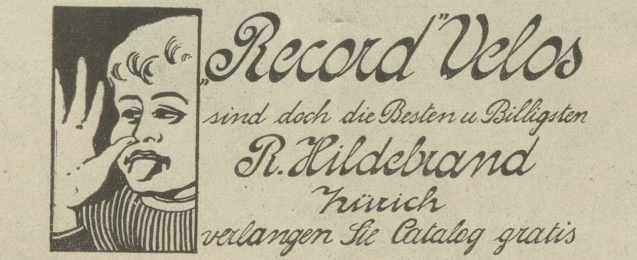 „Record" Velos
sind doch die Besten u. Billigsten
R. Hildebrand
Zürich
verlangen Sie Catalog gratis